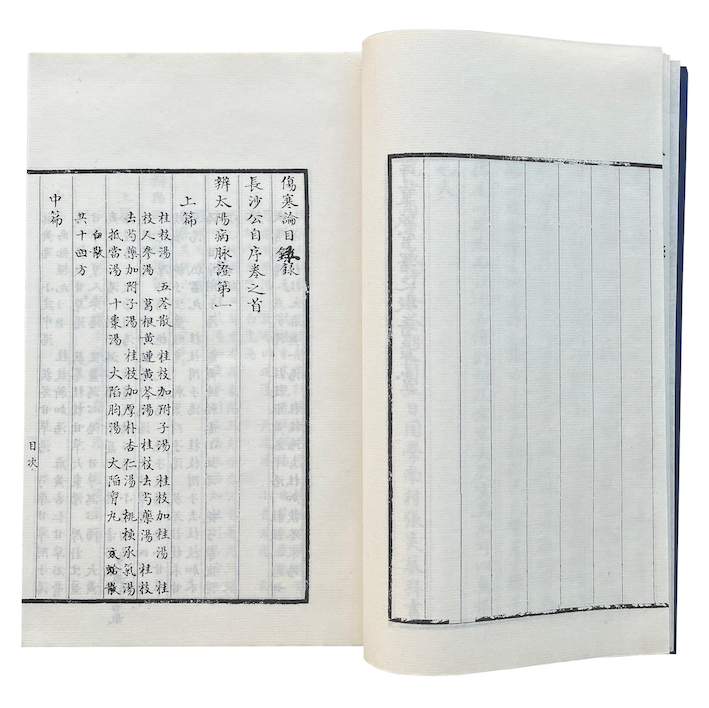 傷寒論目錄
長沙公自序卷之首
辨太陽病脉證第一
上篇
桂枝湯 五苓散 桂枝加附子湯 桂枝加桂湯 桂
枝人參湯 葛根黃連黃芩湯 桂枝去芍藥湯 桂枝
去芍藥加附子湯 桂枝加厚朴杏仁湯 桃核承氣湯
抵當湯 十棗湯 大陷胸湯 大陷胷丸 文蛤散
白散
共十四方
中篇
目次